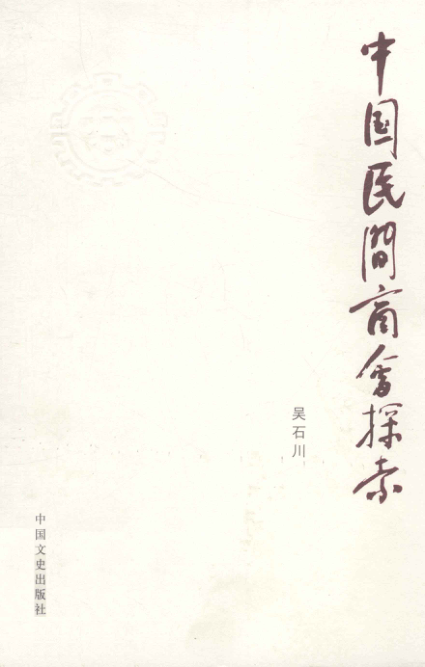 中国民間商會探索
吴石川
中国文史出版社